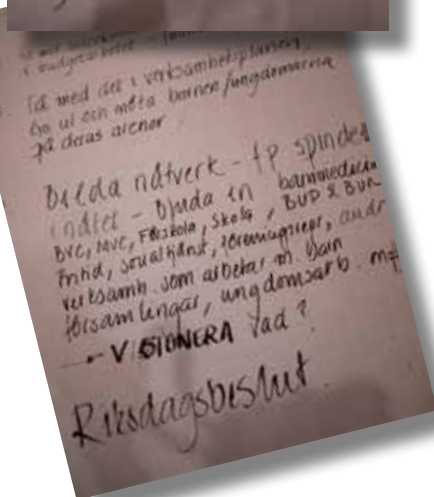 i budgetarbetet -
Få med det i verksamhetsplanen,
Gå ut och möta barnen/ungdomarna
på deras arenor
Bilda nätverk - fp spindel
i nätet - bjuda in barnmedicin
BVC, MVC, Förskola, Skola, BUP & BUM
Fritid, socialtjänst, föreningsrepr, andr
verksamh. som arbetar m. barn
församlingar, ungdomsarb. m fl
VISIONERA vad?
Riksdagsbeslut.